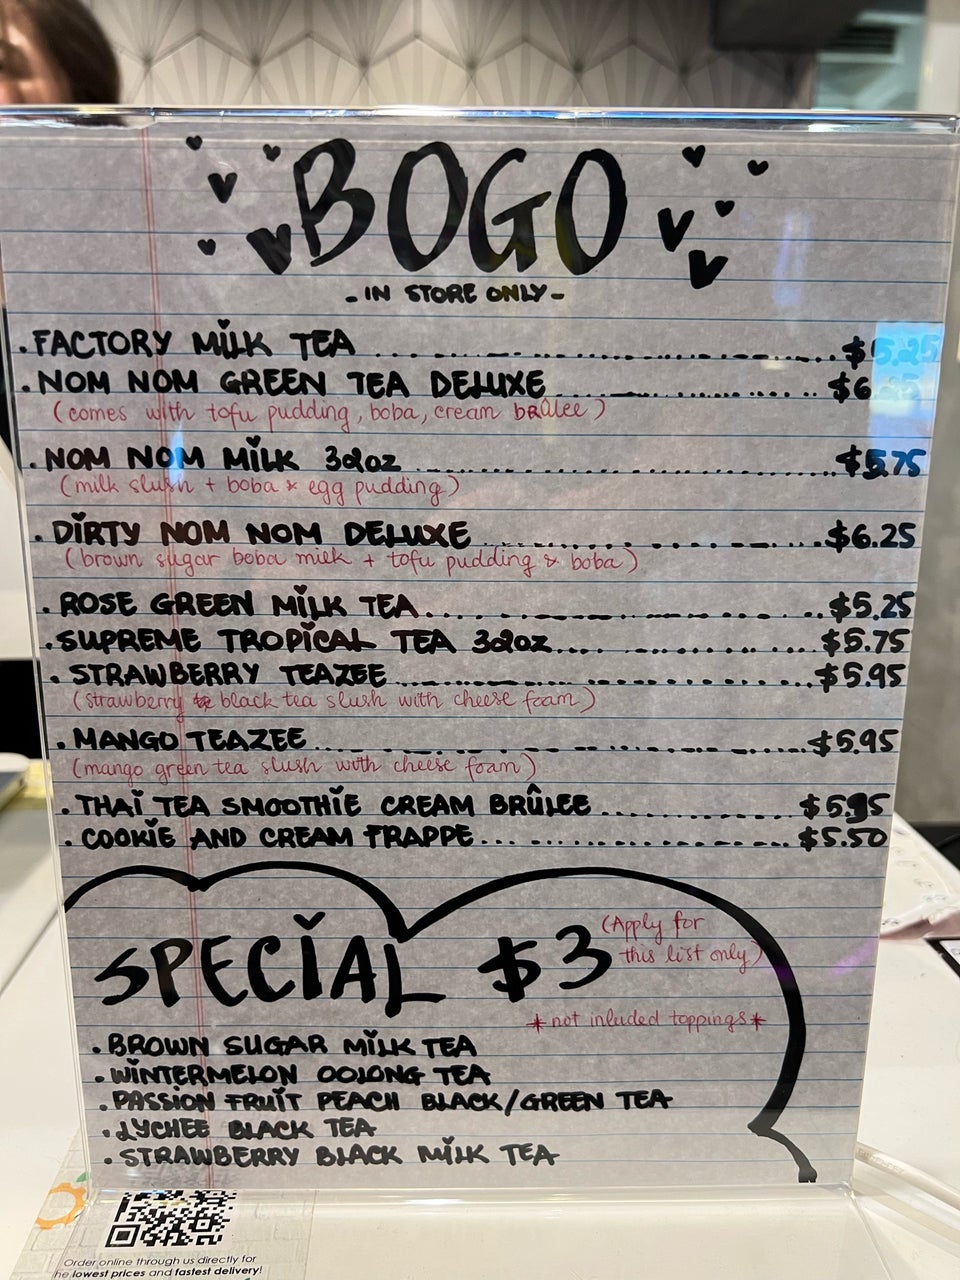 BOGO
- IN STORE ONLY -
. FACTORY MILK TEA ........................ $5.25
. NOM NOM GREEN TEA DELUXE ........................ $6.25
(comes with tofu pudding, boba, cream brûlee)
. NOM NOM MILK 32oz ........................ $5.75
(milk slush + boba & egg pudding)
. DIRTY NOM NOM DELUXE ........................ $6.25
(brown sugar boba milk + tofu pudding & boba)
. ROSE GREEN MILK TEA ........................ $5.25
. SUPREME TROPICAL TEA 32oz ........................ $5.75
. STRAWBERRY TEAZEE ........................ $5.95
(strawberry black tea slush with cheese foam)
. MANGO TEAZEE ........................ $5.95
(mango green tea slush with cheese foam)
. THAI TEA SMOOTHIE CREAM BRÛLEE ........................ $5.95
. COOKIE AND CREAM FRAPPE ........................ $5.50
SPECIAL $3 (Apply for
this list only)
*not inluded toppings*
. BROWN SUGAR MILK TEA
. WINTERMELON OOLONG TEA
. PASSION FRUIT PEACH BLACK/GREEN TEA
. LYCHEE BLACK TEA
. STRAWBERRY BLACK MILK TEA
Order online through us directly for
he lowest prices and fastest delivery!